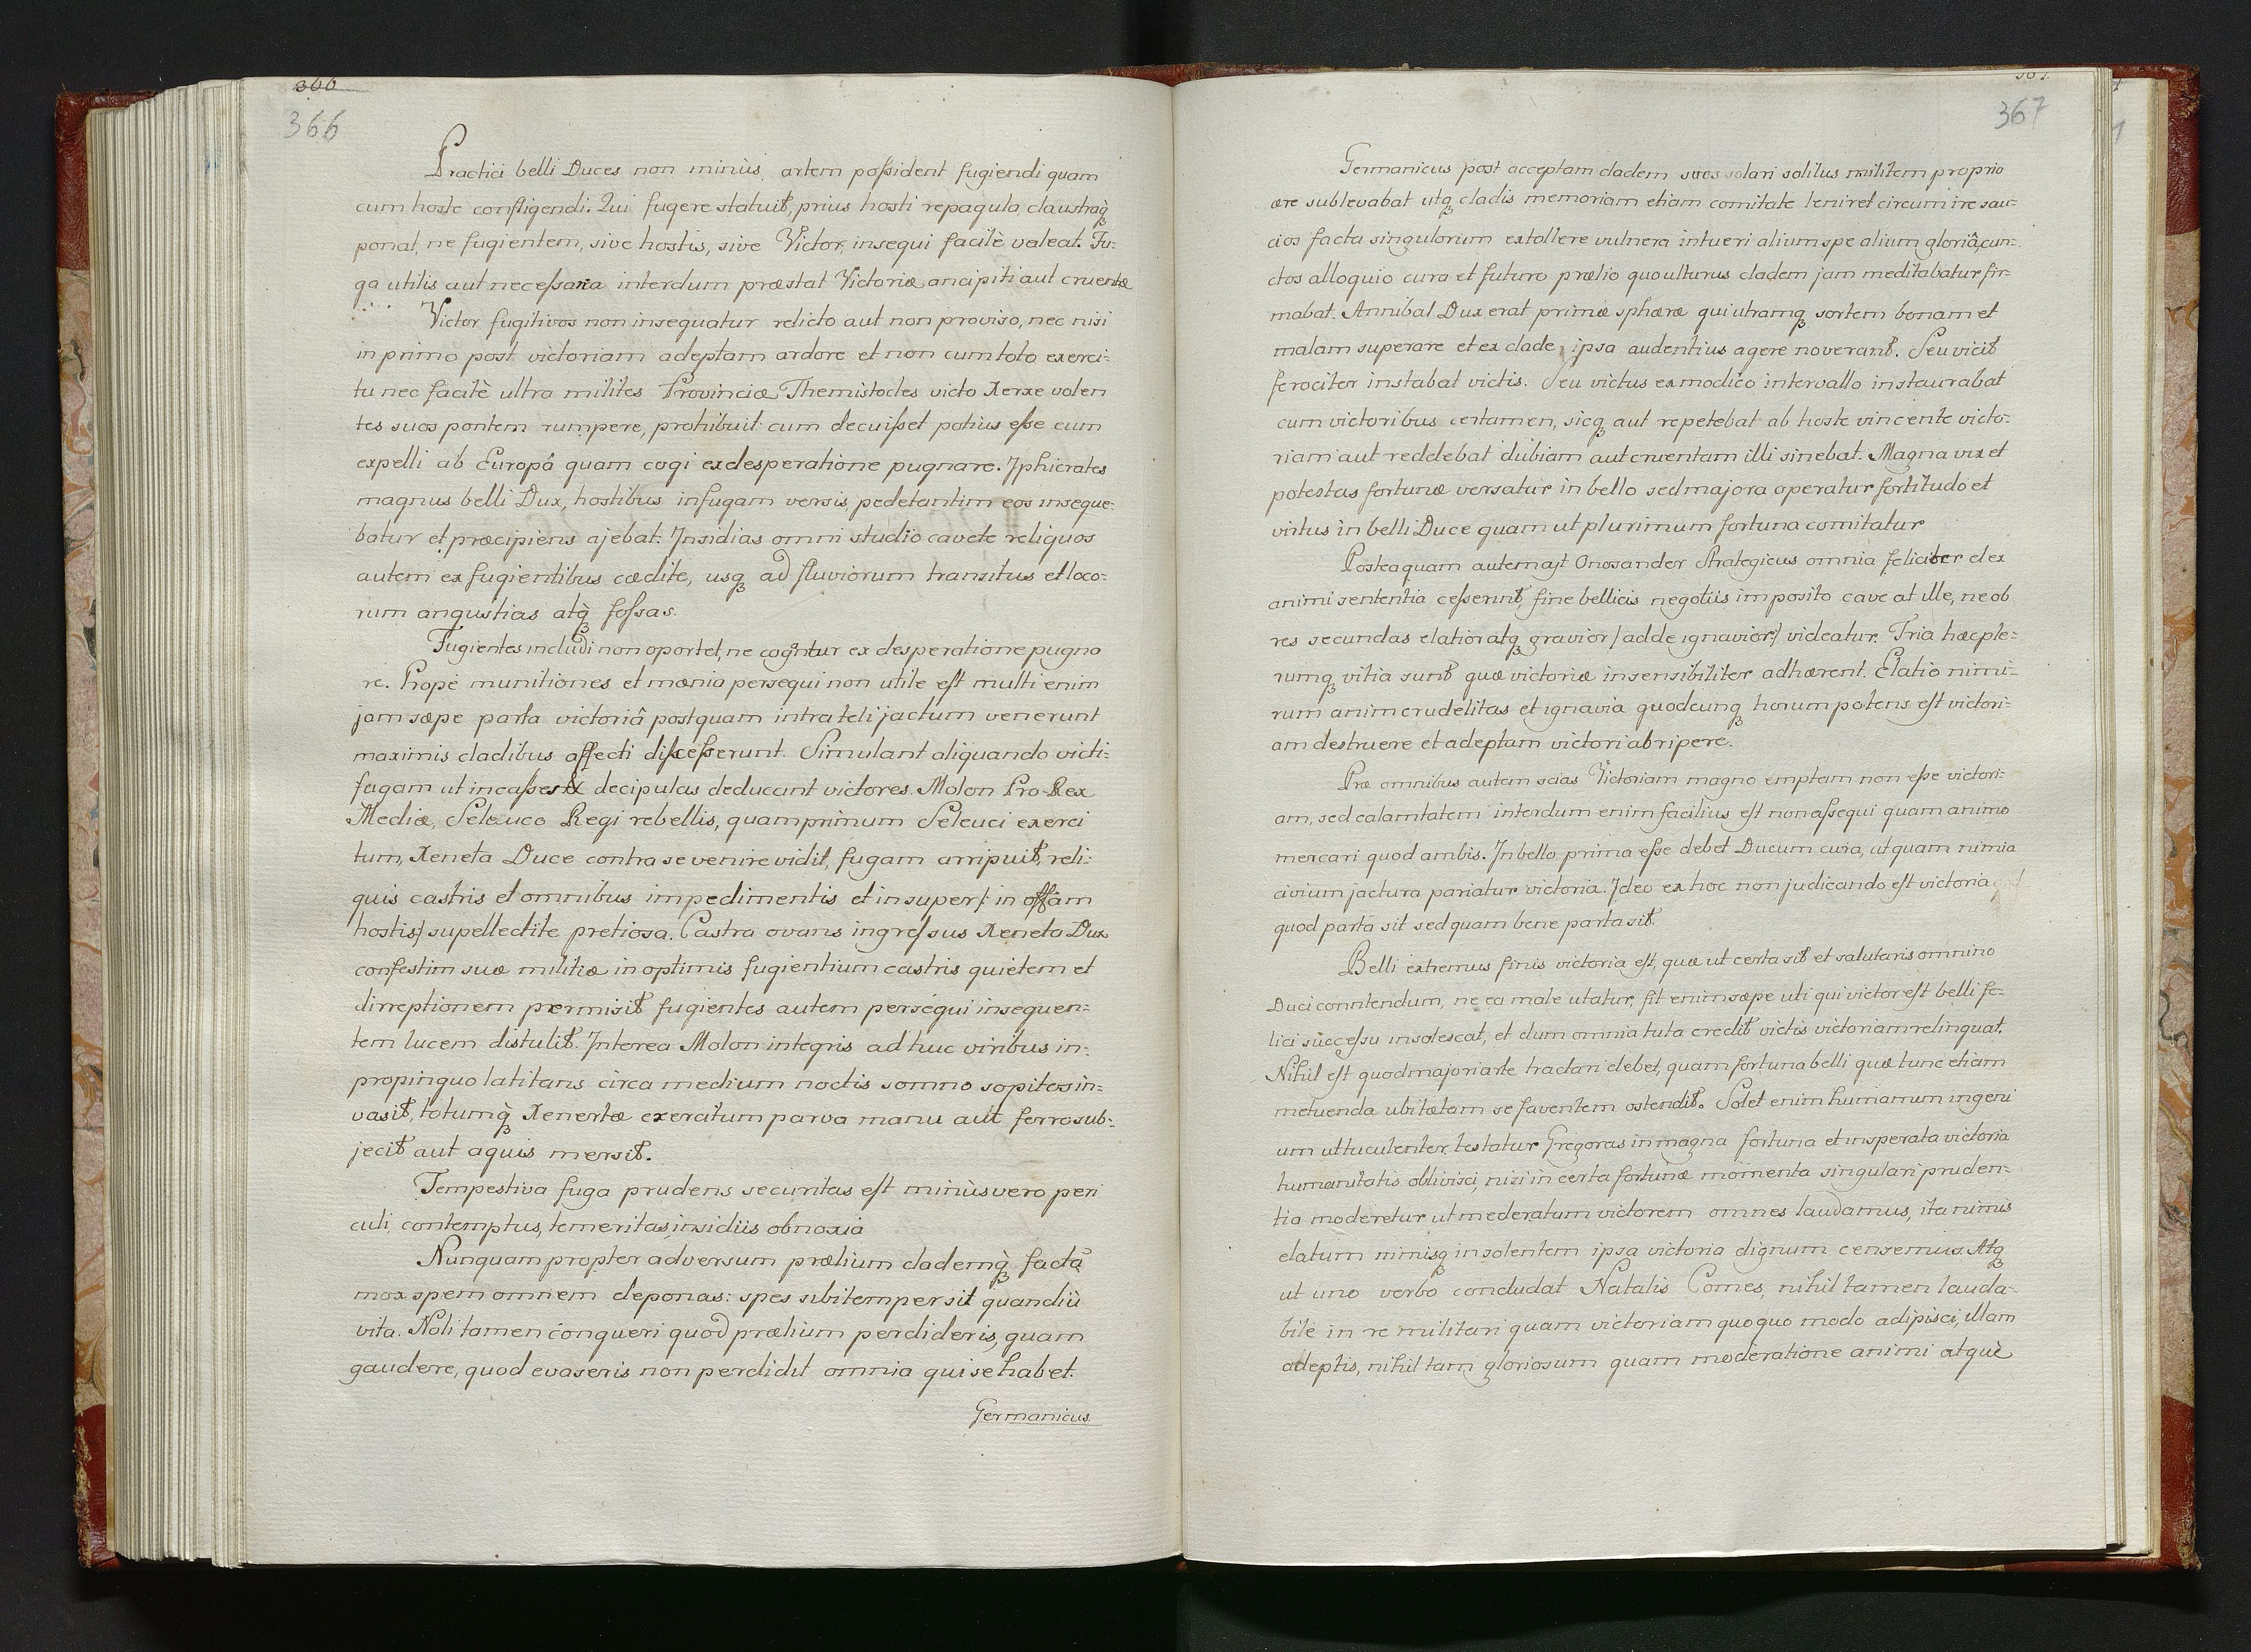 366
366
Practici belli Duces non minùs, artem poſsident fugiendi quam
cum hoste confligendi. Qui fugere statuit, prius hosti repagula, claustraq̀ʒ
ponat, ne fugientem, sive hostis, sive Victor, insequi facilè valeat. Fu-
ga utilis aut neceſsaria interdum præstat Victoriæ ancipiti aut cruentæ
Victor fugitivos non insequatur relicto aut non proviso, nec nisi
in primo post victoriam adeptam ardore et non cum toto exerci-
tu nec facilè ultra milites Provinciæ Themistocles victo Xerxe volen
tes suos pontem rumpere, prohibuit: cum decuiſset potius eſse eum
expelli ab Europâ quam cogi ex desperatione pugnare. Jphicrates
magnus belli Dux, hostibus in fugam versis, pedetantim eos inseque-
batur et præcipiens ajebat: Jnsidias omni studio cavete reliquos
autem ex fugientibus cædite, usqʒ ad fluviorum transitus et loco-
rum angustias atq̀ʒ foſsas.
Fugientes includi non oportet, ne cogantur ex desperatione pugna
re. Propè munitiones et mænia persequi non utile est multi enim
jam sæpe parta victoriâ postquam intra teli jactum venerunt
maximis cladibus affecti diſceſserunt. Simulant aliquando victi-
fugam ut in caſses & decipulas deducant victores. Molon Pro-Rex
Mediæ, Seleuco Regi rebellis, quamprimum Seleuci exerci
tum, Xeneta Duce contra se venire vidit, fugam arripuit, reli-
quis castris et omnibus impedimentis et insuper /: in offam
hostis:/ supellectile pretiosa. Castra ovans ingreſsus Xeneta Dux
confestim suæ militiæ in optimis fugientium castris quietem et
dirreptionem permisit fugientes autem persequi insequen-
tem lucem distulit. Jnterea Molon integris ad huc viribus in-
propinquo latitans circa medium noctis somno sopitos in-
vasit, totumq̀ʒ Xenertæ exercitum parva manu aut ferro sub-
jecit aut aquis mersit.
Tempestiva fuga prudens securitas est minùs vero peri
culi contemptus, temeritas, insidiis obnoxia
Nunquam propter adversum prælium clademq̀ʒ factā
mox spem omnem deponas: spes sibi temper sit quandiù
vita. Noli tamen conqueri quod prælium perdideris, quam
gaudere, quod evaseris non perdidit omnia qui se habet.
Germanicus.
367
Germanicus post acceptam cladem suos solari solitus militem proprio
ære sublevabat utqʒ cladis memoriam etiam comitate leniret circum ire sau-
cios facta singulorum extollere vulnera intueri alium spe alium gloriâ, cun-
ctos alloquio cura et futuro prælio quo ulturus cladem jam meditabatur fir-
mabat. Annibal Dux erat primæ sphæræ qui utramqʒ sortem bonam et
malam superare et ex clade, ipsa audentius agere noverant. Seu vicit
ferociter instabat victis. Seu victus ex modico intervallo instaurabat
cum victoribus certamen, sicqʒ aut repetebat ab hoste vincente victo-
riam aut reddebat dubiam aut cruentam illi sinebat. Magna vix et
potestas fortunæ versatur in bello sed majora operatur fortitudo et
virtus in belli Duce quam ut plurimum fortuna comitatur
Postea quam autem ajt Onosander Strategicus omnia feliciter et ex
animi sententia ceſserint, fine bellicis negotiis imposito caveat ille, ne ob
res secundas elatior atqʒ gravior /: adde ignavior :/ videatur. Tria hæc ple-
rumqʒ vitia sunt quæ victoriæ insensibiliter adhærent. Elatio nimi-
rum anim crudelitas et ignavia quodcunqʒ horum potens est victori-
am destruere et adeptam victori abripere.
Præ omnibus autem scias Victoriam magno emptam non eſse victori-
am, sed calamtatem interdum enim facilius est non aſsequi quam animo
mercari quod ambis. Jn bello prima eſse debet Ducum cura, ut quam nimia
civium jactura pariatur victoria. Jdeo ex hoc non judicando est victoria
quod parta sit sed quam bene parta sit.
Belli extremus finis victoria est, quæ ut certa sit et salutaris omnino
Duci conntendum, ne ea male utatur, fit enim sæpe uti qui victor est belli fe-
lici succeſsu insolescat, et dum omnia tuta credit victis victoriam relinquat.
Nihil est quod majori arte tractari debet, quam fortuna belli quæ tunc etiam
metuenda ubi tætam se faventem ostendit. Solet enim humanum ingeni
um ut tuculenter testatur Gregoras in magna fortuna et insperata victoria
humanitatis oblivisci, nisi in certa fortunæ momenta singulari pruden-
tia moderetur ut mederatum victorem omnes laudamus, ita nimis
elatum nimisqʒ insolentem ipsa victoria dignum censemus. Atqʒ
ut uno verbo concludat Natalis Comes, nihil tamen lauda-
bile in re militari quam victoriam quo quo modo adipisci, illam
adeptis, nihil tam gloriosum quam moderatione animi atquè